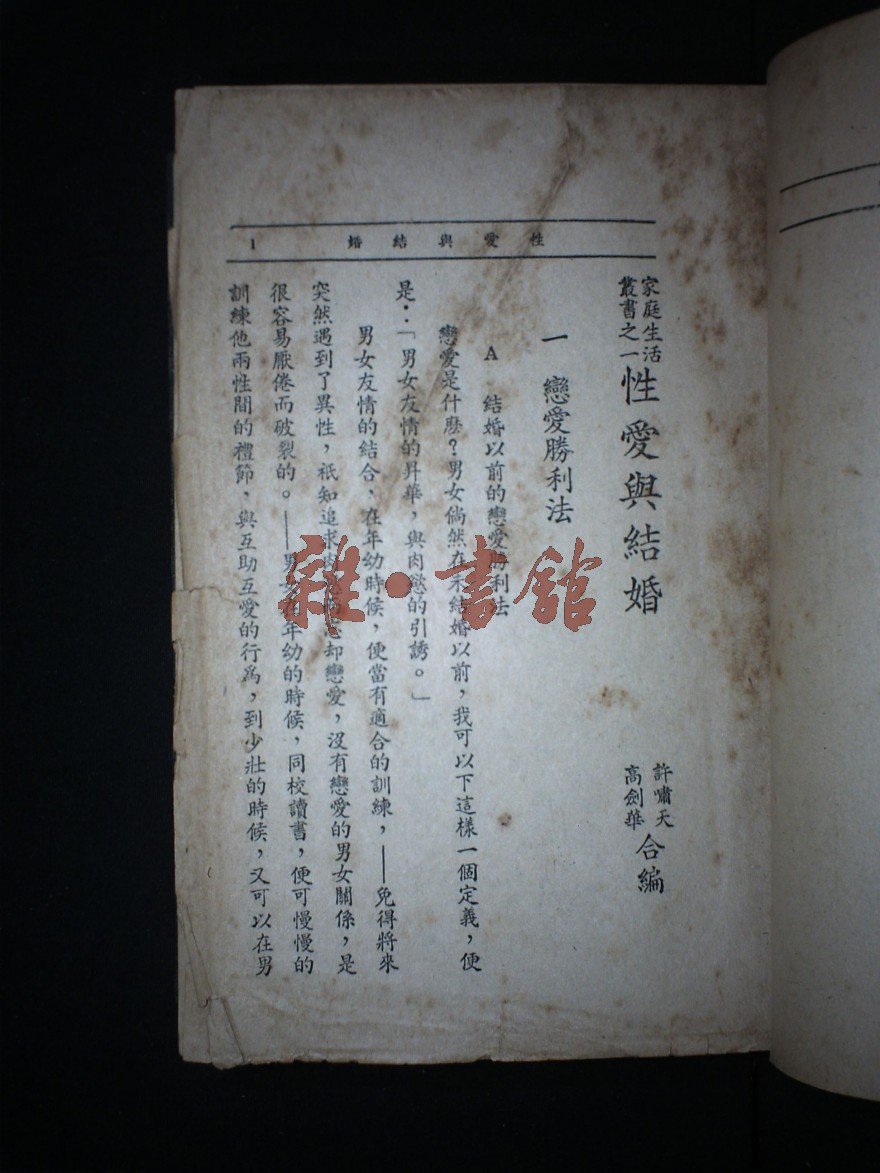 性愛與結婚 1
家庭生活
叢書之一
性愛與結婚
許嘯天
高劍華
合編
一 戀愛勝利法
A 結婚以前的戀愛勝利法
戀愛是什麼?男女倘然在未結婚以前,我可以下這樣一個定義,便
是:「男女友情的昇華,與肉慾的引誘。」
男女友情的結合,在年幼時候,便當有適合的訓練,——免得將來
突然遇到了異性,祇知追求肉慾而忘却戀愛,沒有戀愛的男女關係,是
很容易厭倦而破裂的。——男女在年幼的時候,同校讀書,便可慢慢的
訓練他兩性間的禮節,與互助互愛的行為,到少壯的時候,又可以在男
雜·書館